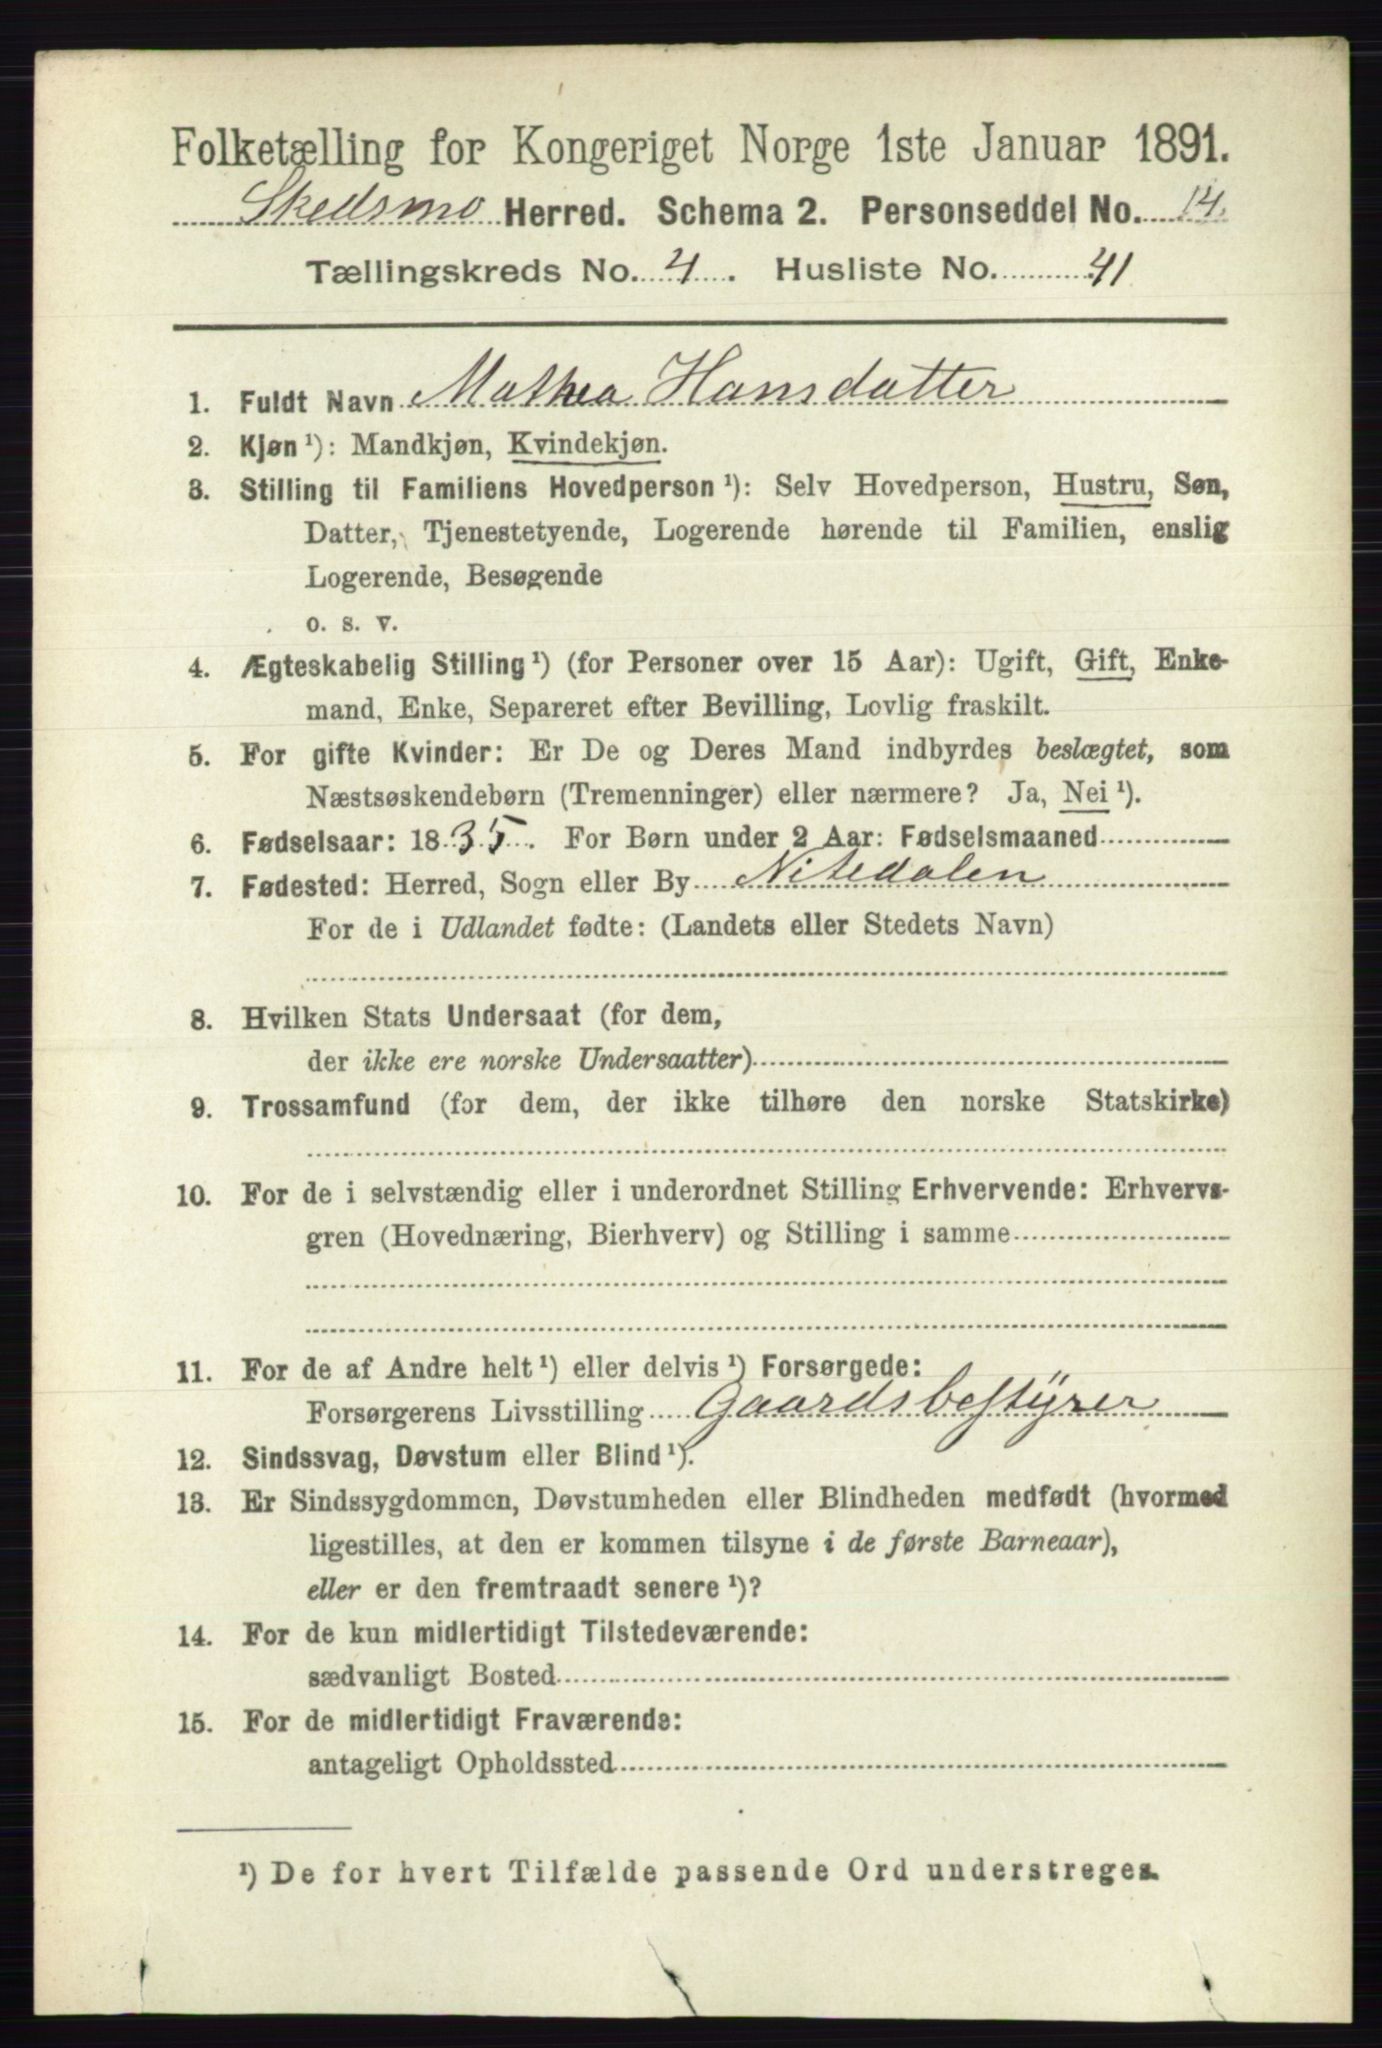 Folketælling for Kongeriget Norge 1ste Januar 1891.
Skedsmo Herred. Schema 2. Personseddel No. 14.
Tællingskreds No. 4. Husliste No. 41
1. Fuldt Navn Mathea Hansdatter
2. Kjøn ¹): Mandkjøn, Kvindekjøn.
3. Stilling til Familiens Hovedperson ¹): Selv Hovedperson, Hustru, Søn,
Datter, Tjenestetyende, Logerende hørende til Familien, enslig
Logerende, Besøgende
o. s. v.
4. Ægteskabelig Stilling ¹) (for Personer over 15 Aar): Ugift, Gift, Enke-
mand, Enke, Separeret efter Bevilling, Lovlig fraskilt.
5. For gifte Kvinder: Er De og Deres Mand indbyrdes beslægtet, som
Næstsøskendebørn (Tremenninger) eller nærmere? Ja, Nei ¹).
6. Fødselsaar: 1835. For Børn under 2 Aar: Fødselsmaaned
7. Fødested: Herred, Sogn eller By Nitedalen
For de i Udlandet fødte: (Landets eller Stedets Navn)
8. Hvilken Stats Undersaat (for dem,
der ikke ere norske Undersaatter)
9. Trossamfund (for dem, der ikke tilhøre den norske Statskirke)
10. For de i selvstændig eller i underordnet Stilling Erhvervende: Erhvervs-
gren (Hovednæring, Bierhverv) og Stilling i samme
11. For de af Andre helt ¹) eller delvis ¹) Forsørgede:
Forsørgerens Livsstilling Gaardsbestyrer
12. Sindssvag, Døvstum eller Blind ¹).
13. Er Sindssygdommen, Døvstumheden eller Blindheden medfødt (hvormed
ligestilles, at den er kommen tilsyne i de første Barneaar),
eller er den fremtraadt senere ¹)?
14. For de kun midlertidigt Tilstedeværende:
sædvanligt Bosted
15. For de midlertidigt Fraværende:
antageligt Opholdssted
¹) De for hvert Tilfælde passende Ord understreges.